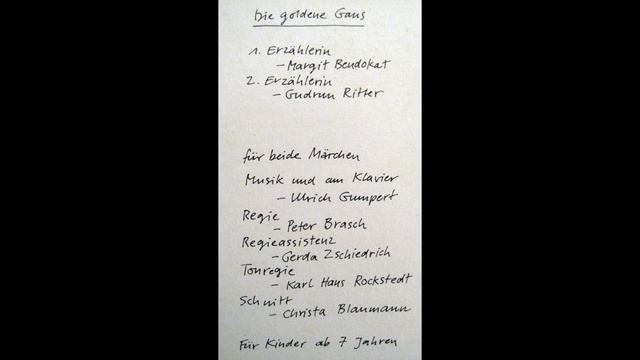 Die goldene Gans
1. Erzählerin
– Margit Bendokat
2. Erzählerin
– Gudrun Ritter
für beide Märchen
Musik und am Klavier
– Ulrich Gumpert
Regie
– Peter Brasch
Regieassistenz
– Gerda Zschiedrich
Tonregie
– Karl Hans Rockstedt
Schnitt
– Christa Blaumann
Für Kinder ab 7 Jahren